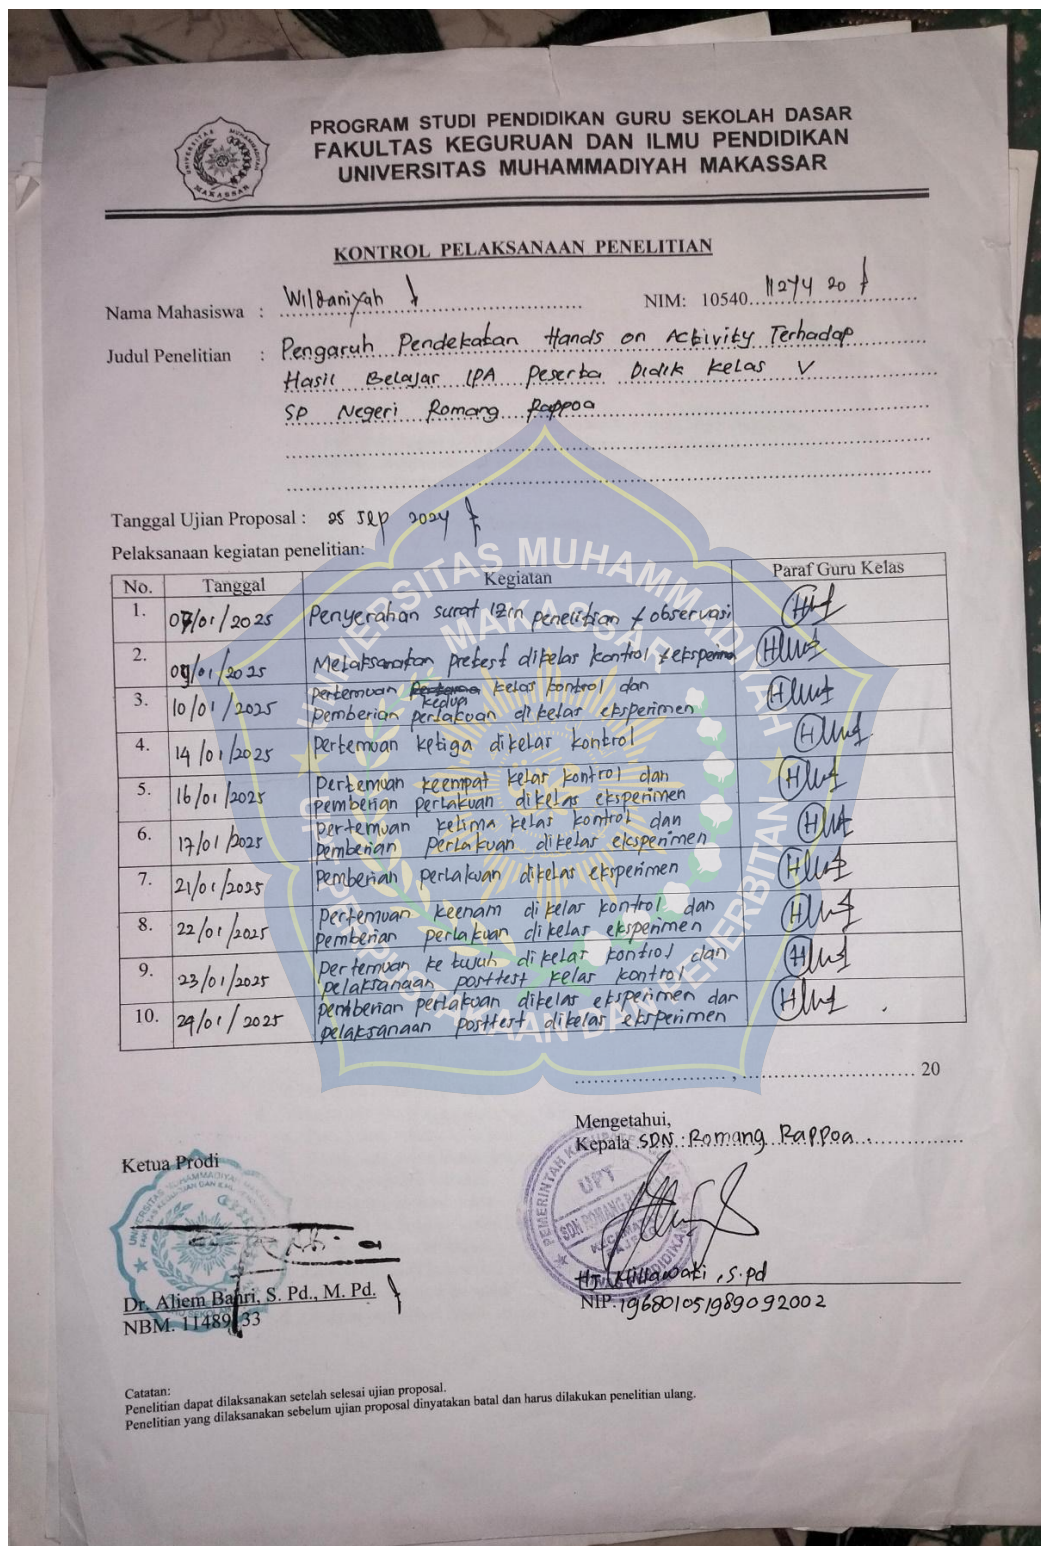 PROGRAM STUDI PENDIDIKAN GURU SEKOLAH DASAR
FAKULTAS KEGURUAN DAN ILMU PENDIDIKAN
UNIVERSITAS MUHAMMADIYAH MAKASSAR
KONTROL PELAKSANAAN PENELITIAN
Nama Mahasiswa : Wildaniyah NIM: 10540 11274 20
Judul Penelitian : Pengaruh Pendekatan Hands on Activity Terhadap
Hasil Belajar IPA Peserta Didik Kelas V
SD Negeri Romang Rappoa
Tanggal Ujian Proposal : 25 Sep 2024
Pelaksanaan kegiatan penelitian:
No. Tanggal Kegiatan Paraf Guru Kelas
1. 07/01/2025 Penyerahan surat izin penelitian + observasi
2. 09/01/2025 Melaksanakan pretest dikelas kontrol + eksperimen
3. 10/01/2025 pertemuan kedua kelas kontrol dan
pemberian perlakuan di kelas eksperimen
4. 14/01/2025 Pertemuan ketiga dikelas kontrol
5. 16/01/2025 Pertemuan keempat kelas kontrol dan
pemberian perlakuan dikelas eksperimen
6. 17/01/2025 Pertemuan kelima kelas kontrol dan
Pemberian perlakuan dikelas eksperimen
7. 21/01/2025 Pemberian perlakuan dikelas eksperimen
8. 22/01/2025 Pertemuan keenam di kelas kontrol dan
pemberian perlakuan di kelas eksperimen
9. 23/01/2025 Pertemuan ke tujuh di kelas kontrol dan
pelaksanaan posttest kelas kontrol
10. 24/01/2025 pemberian perlakuan dikelas eksperimen dan
pelaksanaan posttest dikelas eksperimen
UNIVERSITAS MUHAMMADIYAH
MAKASSAR
UPT PERPUSTAKAAN DAN PENERBITAN
, 20
Mengetahui,
Kepala SDN Romang Rappoa
Ketua Prodi
Dr. Aliem Bahri, S. Pd., M. Pd.
Hj. , S.pd
NIP. 196801051989092002
Catatan:
Penelitian dapat dilaksanakan setelah selesai ujian proposal.
Penelitian yang dilaksanakan sebelum ujian proposal dinyatakan batal dan harus dilakukan penelitian ulang.